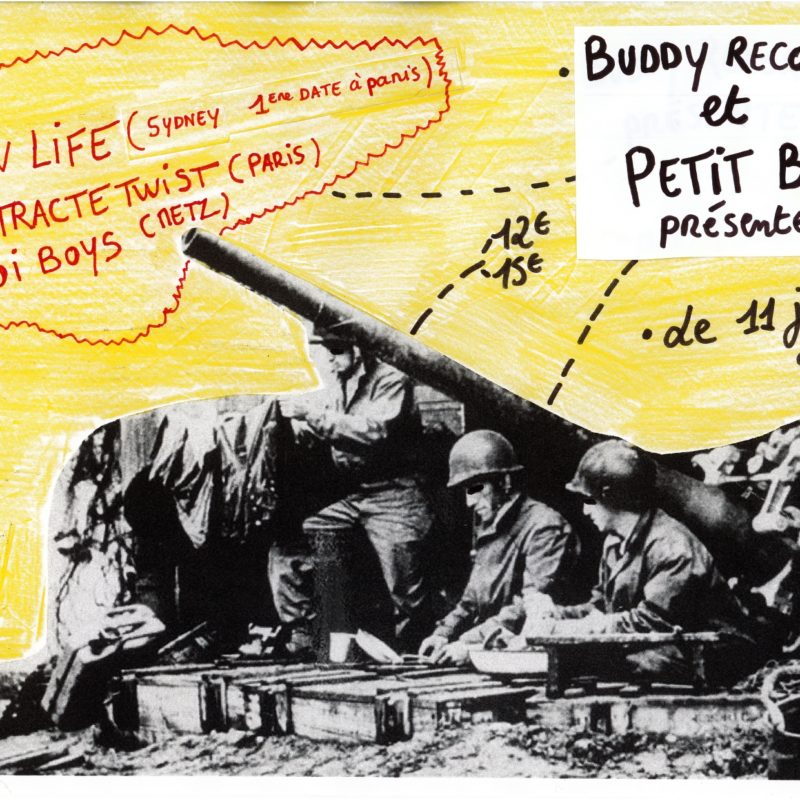 LiFE (SYDNEY 1ERE DATE à paris)
TRACTE TWiST (PARiS)
Di BOYS (METZ)
• BUDDY RECO
et
PETiT B
présente
12€
15€
• de 11 j